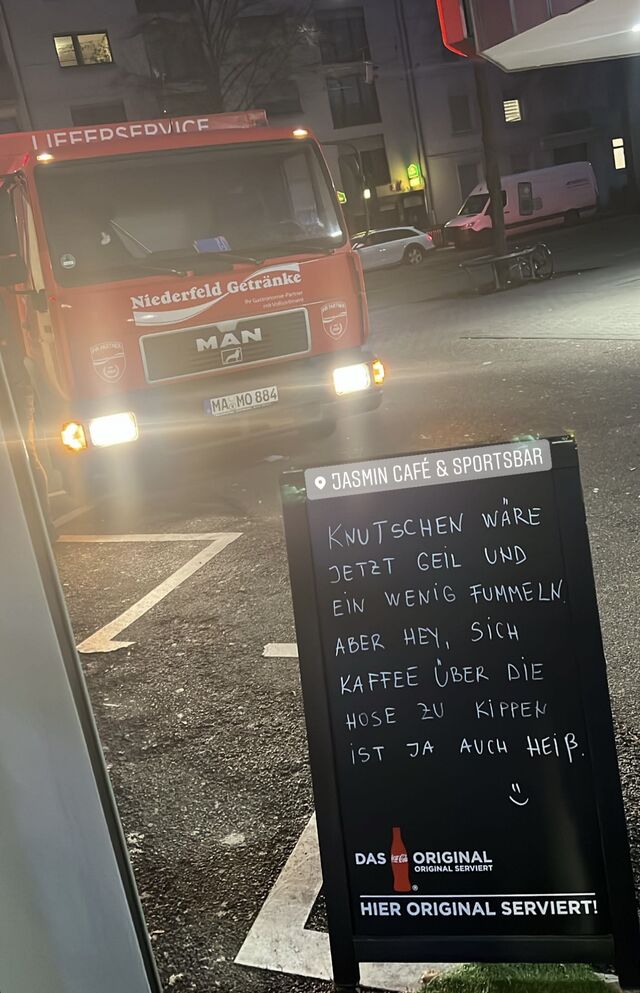 LIEFERSERVICE
Niederfeld Getränke
Ihr Gastronomie-Partner
mit Vollsortiment
IHR PARTNER
MAN
MA MO 884
JASMIN CAFÉ & SPORTSBAR
KNUTSCHEN WÄRE
JETZT GEIL UND
EIN WENIG FUMMELN.
ABER HEY, SICH
KAFFEE ÜBER DIE
HOSE ZU KIPPEN
IST JA AUCH HEIß.
DAS Coca-Cola ORIGINAL
ORIGINAL SERVIERT
HIER ORIGINAL SERVIERT!